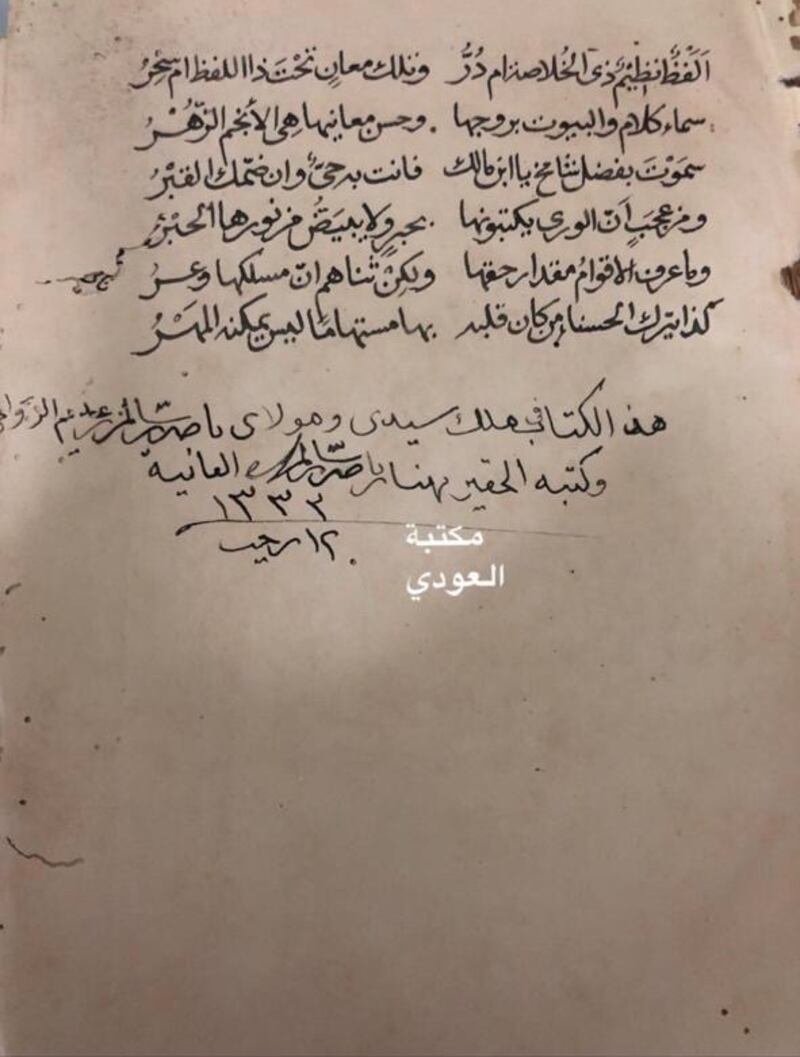 اَلَفْظٌ نظيمٌ ذى الخُلاصة ام دُرُّ وتلك معانٍ تحْتَ ذا اللفظ ام سِحْرُ
سماء كلام والبيوت بروجها وحسن معانيها هى الأنجم الزّهْرُ
سمَوْتَ بفضل شامخ يا ابن مالك فانت به حىٌّ وان ضمّك القبْرُ
ومن عجبٍ اَنّ الورى يكتبونها بحبرٍ ولا يبيَضُّ من نورها الحبْرُ
وما عرف الاقوامُ مقدار حقها ولكِنْ ثناهم انّ مسلكها وعرُ
كذا يترك الحسناء من كان قلبه بها مستهامًا ليس يمكنه المهْرُ
هذا الكتاب فى ملك سيدى ومولاى
وكتبه الحقير مهنا بن
١٣٣٢
١٢ رجب
مكتبة
العودي